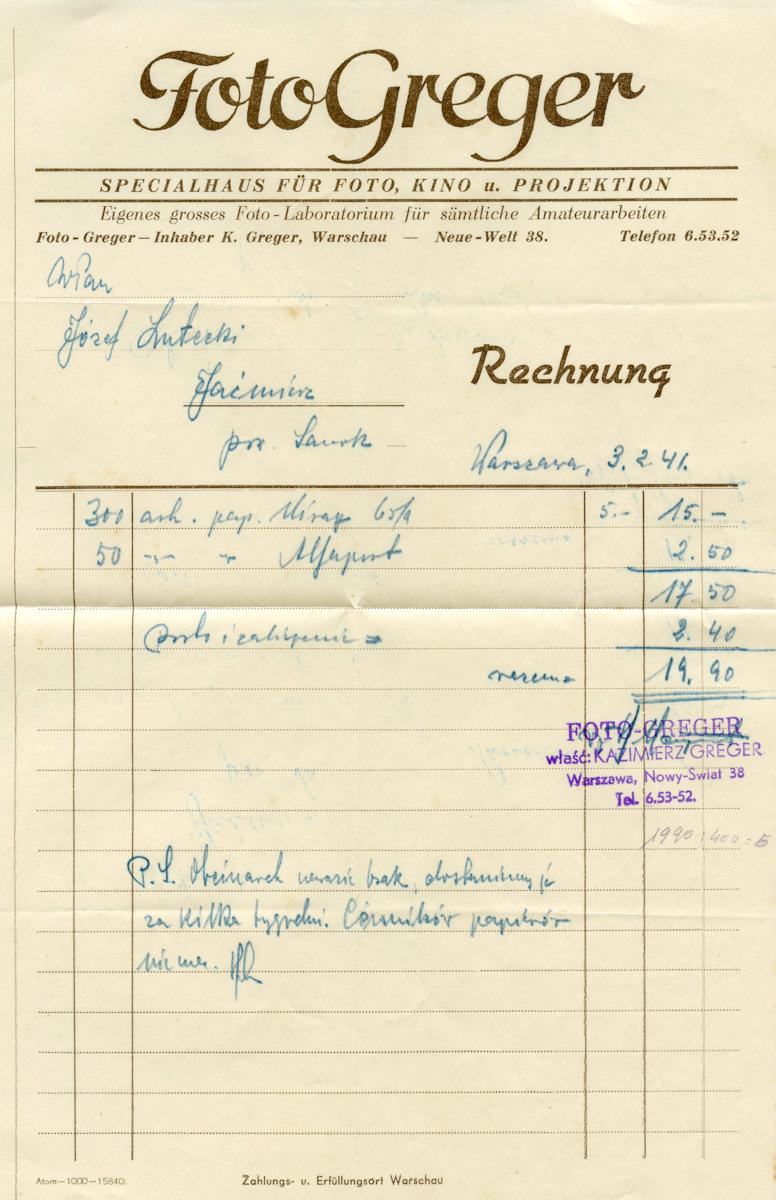 Foto Greger
SPECIALHAUS FÜR FOTO, KINO u. PROJEKTION
Eigenes grosses Foto-Laboratorium für sämtliche Amateurarbeiten
Foto-Greger—Inhaber K. Greger, Warschau — Neue-Welt 38. Telefon 6.53.52
WPan
Józef
Rechnung
Warszawa, 3.2.41.
300 ark. pap. 5.- 15.-
50 -"- " 2.50
17.50
porto i 2.40
razem 19.90
FOTO-GREGER
właśc: KAZIMIERZ GREGER
Warszawa, Nowy-Świat 38
Tel. 6.53-52.
1990:400=5
P.S. brak,
za kilka tygodni. Cenników papierów
nie ma.
Atom—1000—15840.
Zahlungs- u. Erfüllungsort Warschau